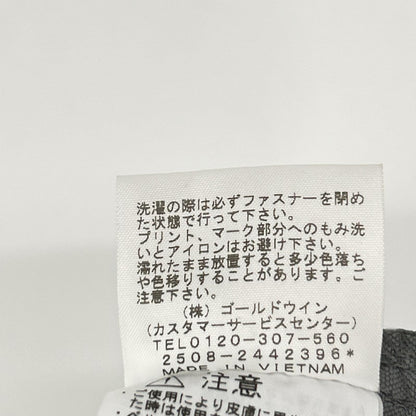 洗濯の際は必ずファスナーを閉め
た状態で行って下さい。
プリント、マーク部分へのもみ洗
いとアイロンはお避け下さい。
濡れたまま放置すると多少色落ち
や色移りすることがあります。ご
注意下さい。
(株) ゴールドウイン
(カスタマーサービスセンター)
TEL0120-307-560
2508-2442396*
MADE IN VIETNAM
注意
ご使用により皮膚に
た時は使用を